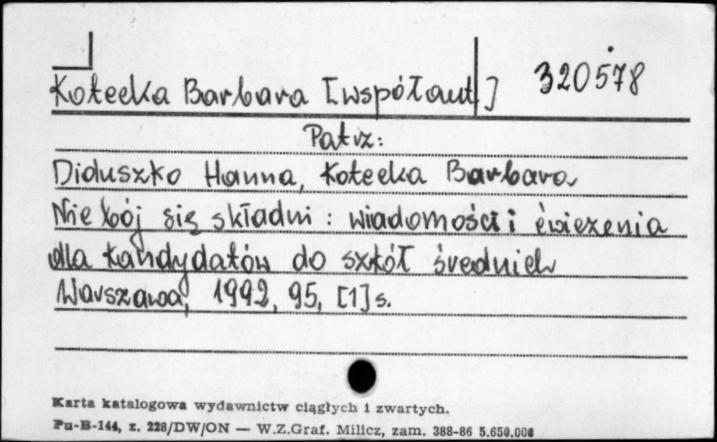 Kotecka Barbara [współaut] 320578
Patrz:
Diduszko Hanna, Kotecka Barbara
Nie bój się składni : wiadomości i ćwiczenia
dla kandydatów do szkół średnich
Warszawa, 1992, 95, [1] s.
Karta katalogowa wydawnictw ciągłych i zwartych.
Pu-B-144, z. 228/DW/ON — W.Z.Graf. Milicz, zam. 388-86 5.650.000